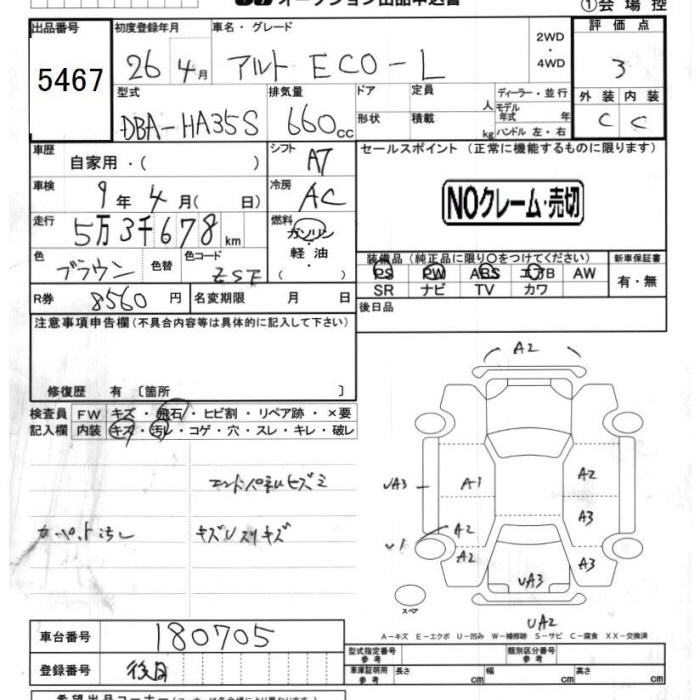 オークション出品申込書
①会場控
出品番号 初度登録年月 車名・グレード 2WD・4WD 評価点
5467 26年4月 アルト ECO-L 3
型式 排気量 ドア 定員 人 ディーラー・並行 外装 内装
DBA-HA35S 660cc 形状 積載 kg モデル年式 年 ハンドル 左・右 C C
車歴 自家用・( ) シフト AT セールスポイント (正常に機能するものに限ります)
車検 9年4月( 日) 冷房 AC NOクレーム・売切
走行 5万3千678km 燃料 ガソリン・軽油( )
色 ブラウン 色替 色コード ZSF 装備品 (純正品に限り○をつけてください) 新車保証書
PS PW ABS エアB AW 有・無
R券 8560円 名変期限 月 日 SR ナビ TV カワ
注意事項申告欄 (不具合内容等は具体的に記入して下さい) 後日品
修復歴 有 〔箇所 〕
検査員記入欄 FW キズ・飛石・ヒビ割・リペア跡・×要
内装 キズ・汚レ・コゲ・穴・スレ・キレ・破レ
カーペット汚レ キズUスリキズ
A2
UA3 A1 A2
A3
U1 A2
A2 A3
UA3
スペア
UA2
A-キズ E-エクボ U-凹み W-補修跡 S-サビ C-腐食 XX-交換済
車台番号 180705 型式指定番号 参考 類別区分番号 参考
登録番号 後日 車庫証明用 参考 長さ cm 幅 cm 高さ cm
希望出品コーナー